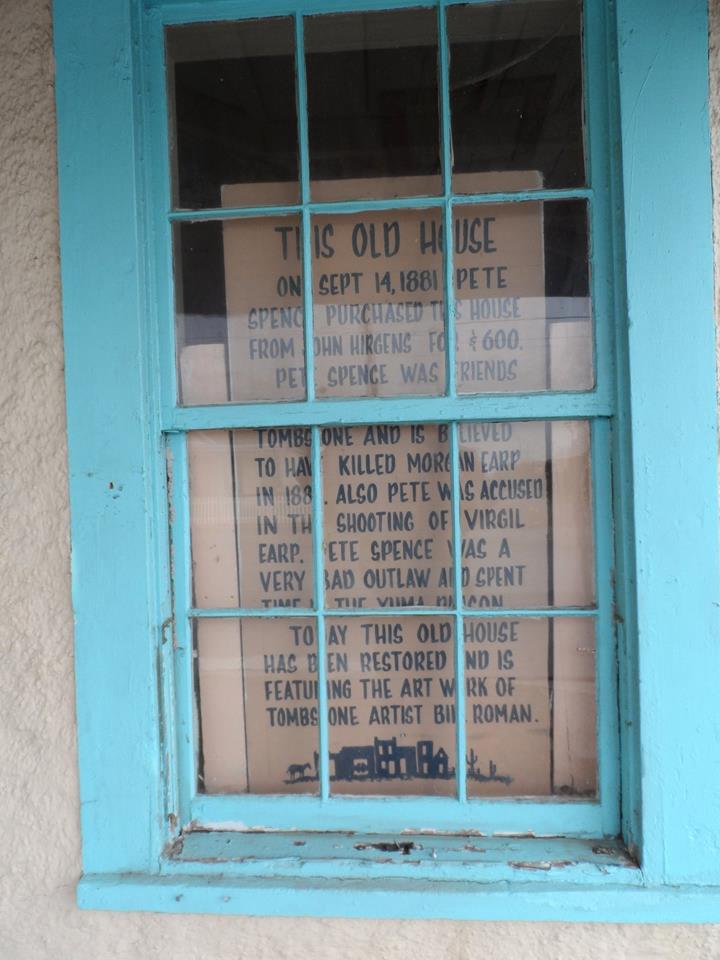 THIS OLD HOUSE
ON SEPT 14, 1881 PETE
SPENCE PURCHASED THIS HOUSE
FROM JOHN HIRGENS FOR $600.
PETE SPENCE WAS FRIENDS
TOMBSTONE AND IS BELIEVED
TO HAVE KILLED MORGAN EARP
IN 188. ALSO PETE WAS ACCUSED
IN THE SHOOTING OF VIRGIL
EARP. PETE SPENCE WAS A
VERY BAD OUTLAW AND SPENT
TIME IN THE YUMA PRISON
TODAY THIS OLD HOUSE
HAS BEEN RESTORED AND IS
FEATURING THE ART WORK OF
TOMBSTONE ARTIST BILL ROMAN.